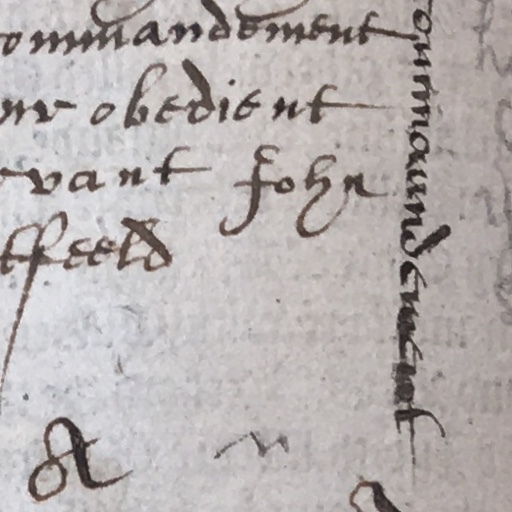 ommandement
ur obedient
rvant John
ffeeld
ommaundement